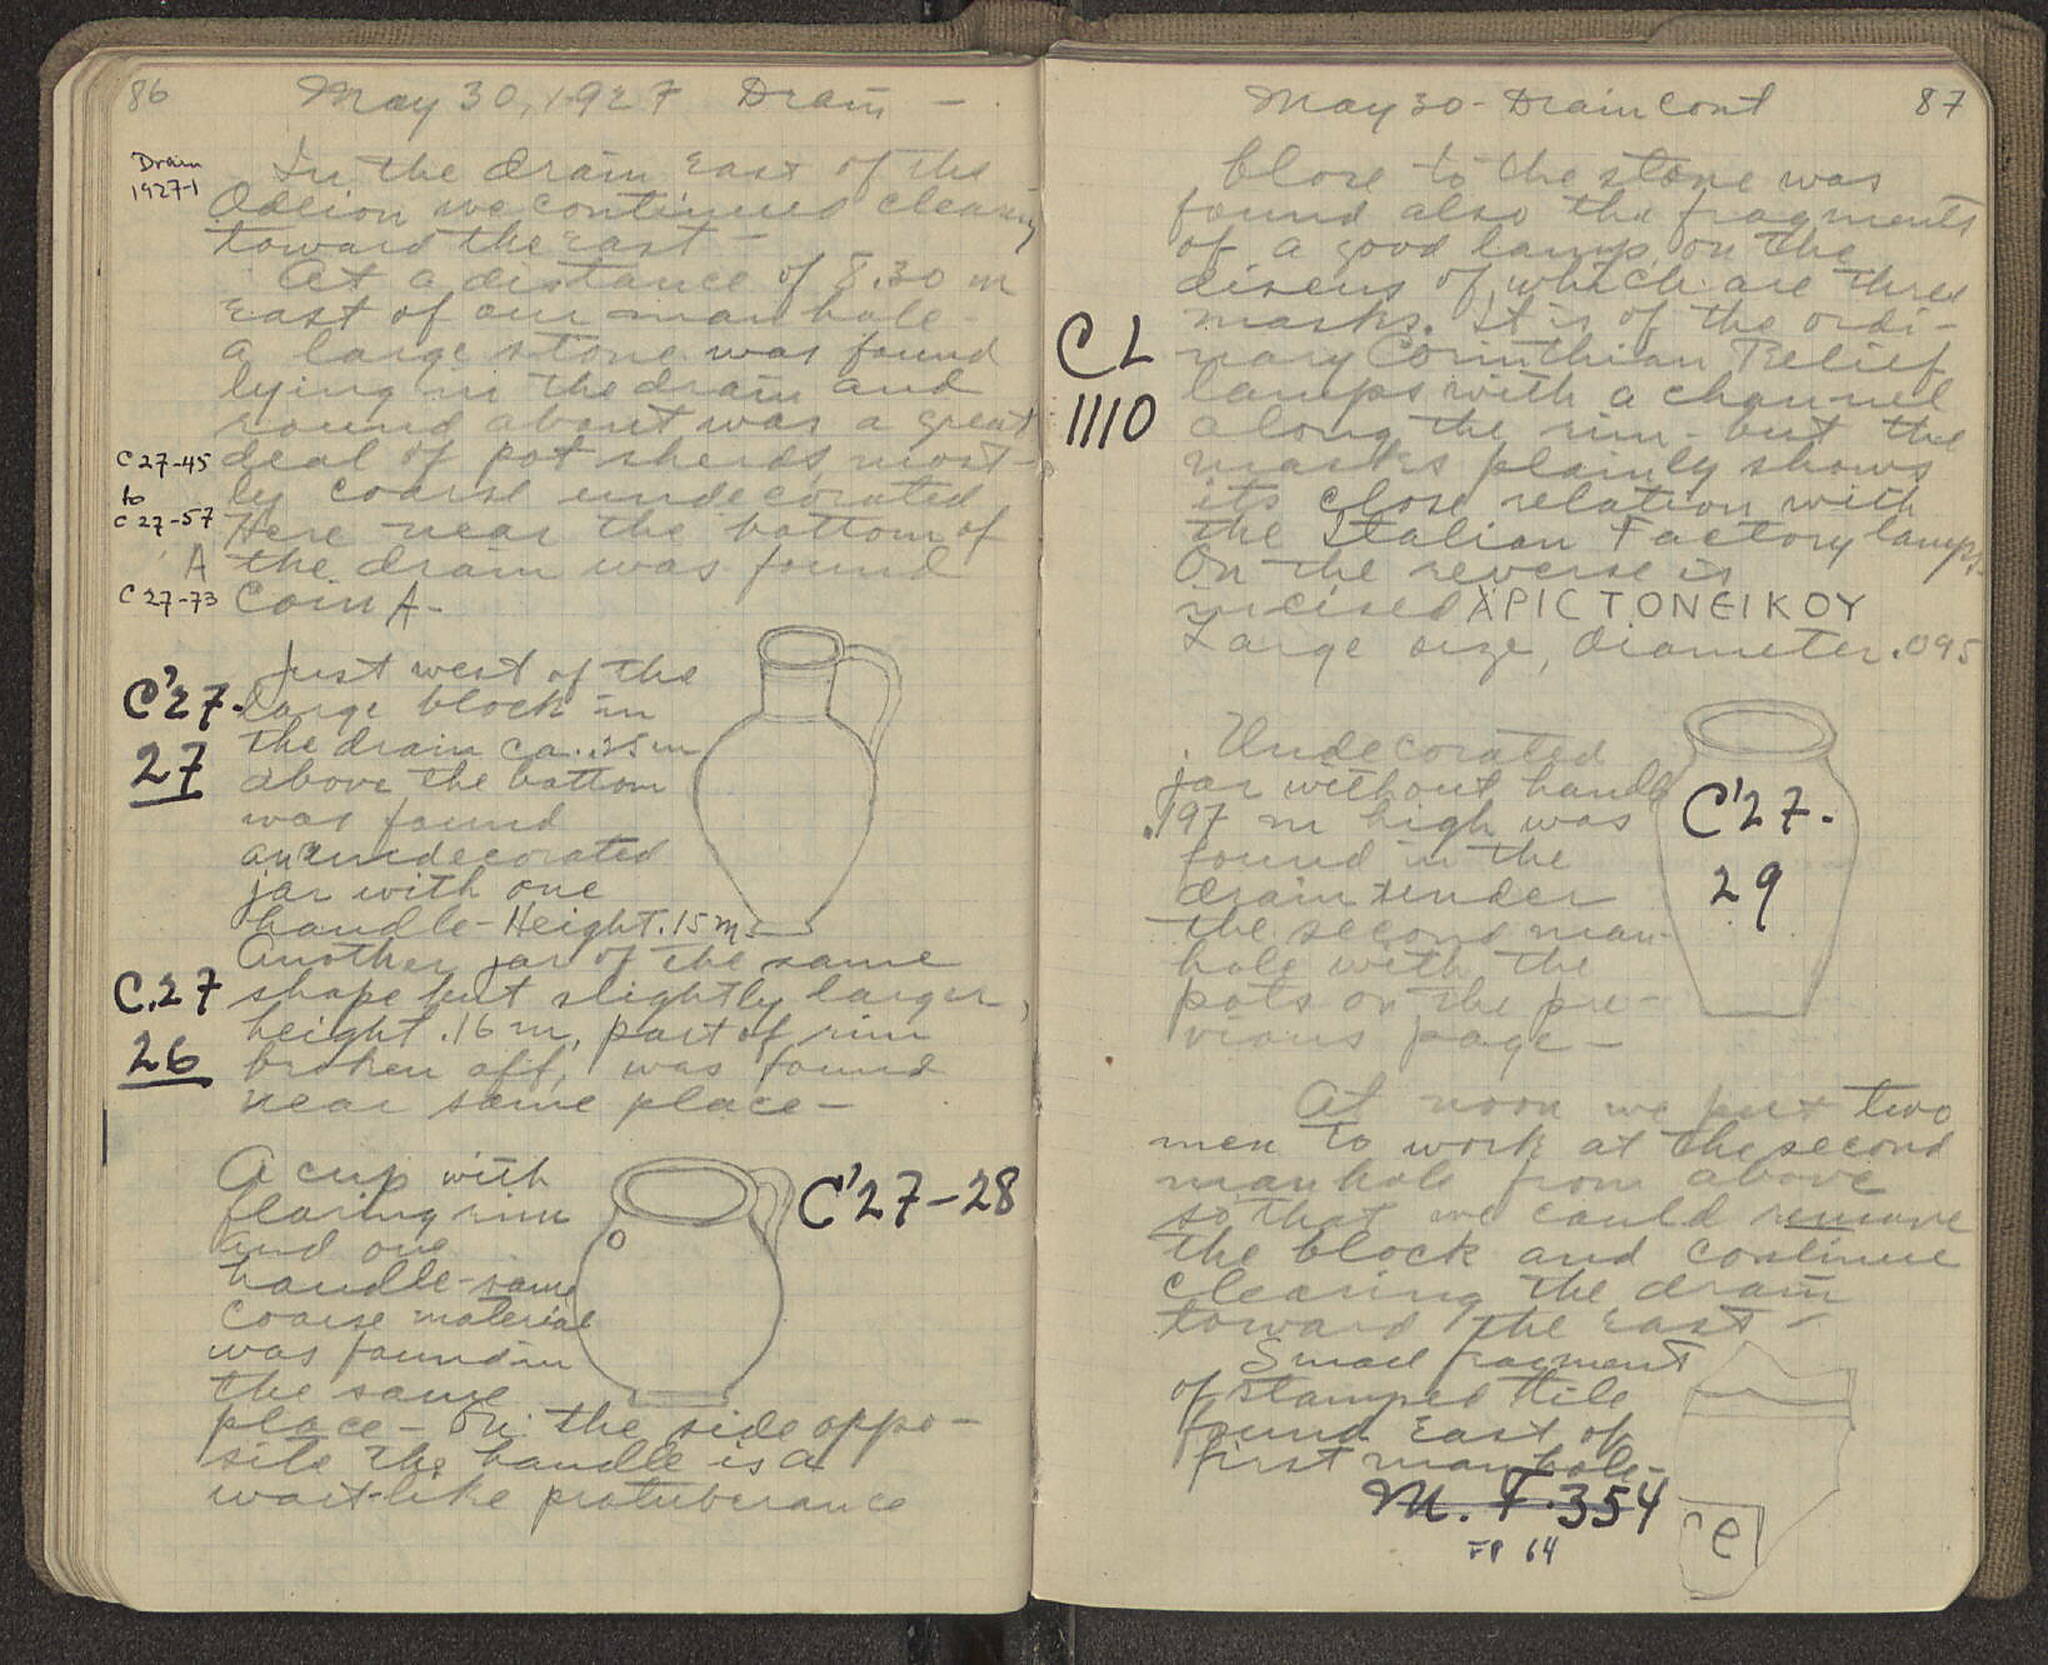 86 May 30, 1927 Drain -
Drain
1927-1
In the drain East of the
Odeion we continued clearing
toward the East -
At a distance of 8.30 m
East of our man hole -
a large stone was found
lying in the drain and
round about was a great
C27-45
to
C27-57
deal of pot sherds, most-
ly coarse undecorated
Here near the bottom of
A the drain was found
C27-73 Coin A -
Just west of the
C'27-
27
large block in
the drain ca. .35m
above the bottom
was found
an undecorated
jar with one
handle - Height .15 m.
Another jar of the same
C.27
26
shape but slightly larger,
height .16 m, part of rim
broken off, was found
near same place -
A cup with
flaring rim
and one
handle - same
coarse material
was found in
the same
place - On the side oppo-
site the handle is a
wart-like protuberance
C'27-28
May 30 - Drain Cont 87
Close to the stone was
found also the fragments
of a good lamp, on the
discus of which are three
masks. It is of the ordi-
CL
1110
nary Corinthian Relief
lamps with a channel
along the rim - but the
masks plainly shows
its close relation with
the Italian Factory lamps.
On the reverse is
incised ΑΡΙCΤΟΝΕΙΚΟΥ
Large size, diameter .095
Undecorated
jar without handle
.197 m high was
found in the
drain under
the second man-
hole with the
pots on the pre-
vious page -
C'27-
29
At noon we put two
men to work at the second
manhole from above
so that we could remove
the block and continue
clearing the drain
toward the East -
Small fragment
of stamped tile
found East of
first manhole -
M. F. 354
FP 64
e